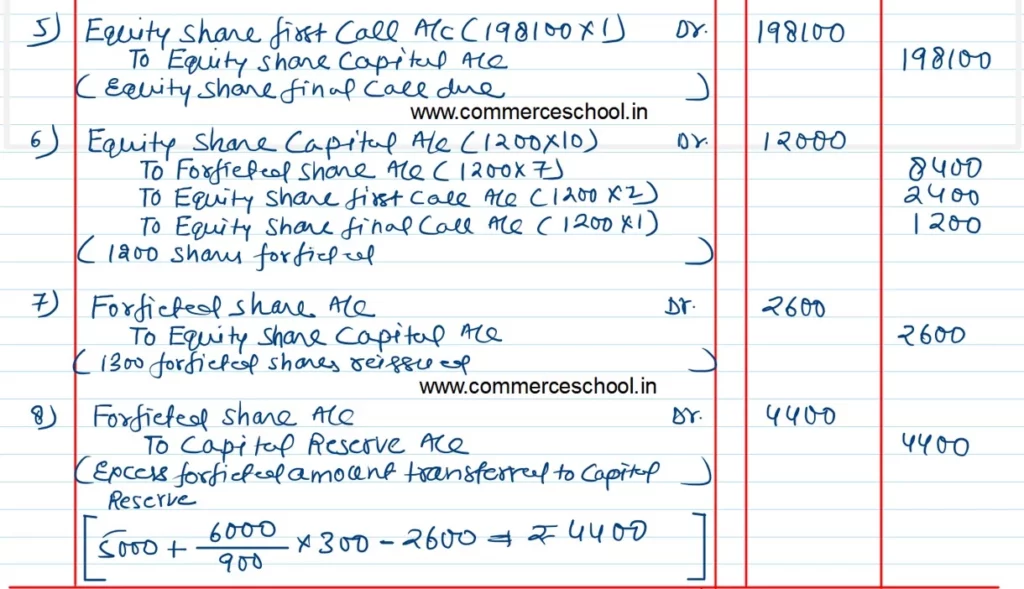 5) Equity share first Call A/c (198100 X 1) Dr. 198100
To Equity share Capital A/c 198100
( Equity share final Call due )
www.commerceschool.in
6) Equity share Capital A/c (1200X10) Dr. 12000
To Forfieted share A/c (1200X7) 8400
To Equity share first Call A/c (1200 X2) 2400
To Equity share final Call A/c (1200X1) 1200
( 1200 shares forfieted )
7) Forfieted share A/c Dr. 2600
To Equity share Capital A/c 2600
( 1300 forfieted shares reissued )
www.commerceschool.in
8) Forfieted share A/c Dr. 4400
To Capital Reserve A/c 4400
(Excess forfieted amount transferred to Capital )
Reserve
[5000 + 6000/900 × 300 - 2600 = ₹ 4400]